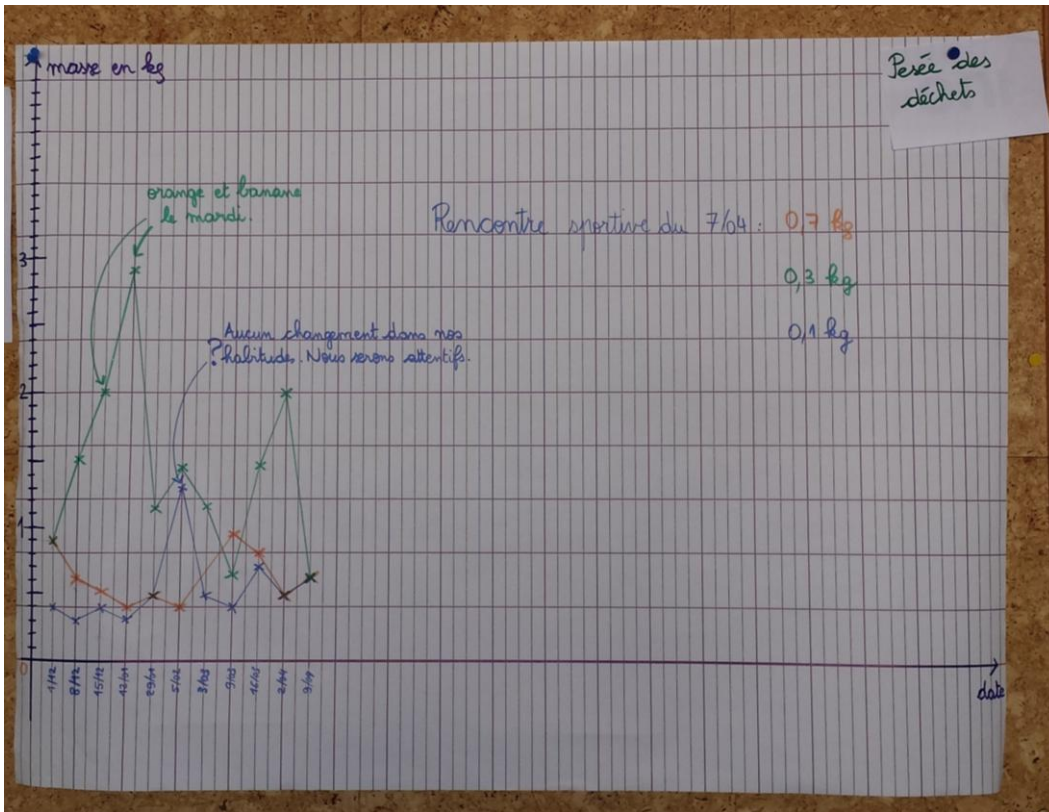 masse en kg
Pesée des
déchets
orange et banane
le mardi.
Rencontre sportive du 7/04 : 0,7 kg
0,3 kg
0,1 kg
Aucun changement dans nos
? habitude. Nous serons attentifs.
3
2
1
0
1/12 8/12 15/12 12/01 29/01 5/02 3/03 9/03 16/03 2/04 9/04
date